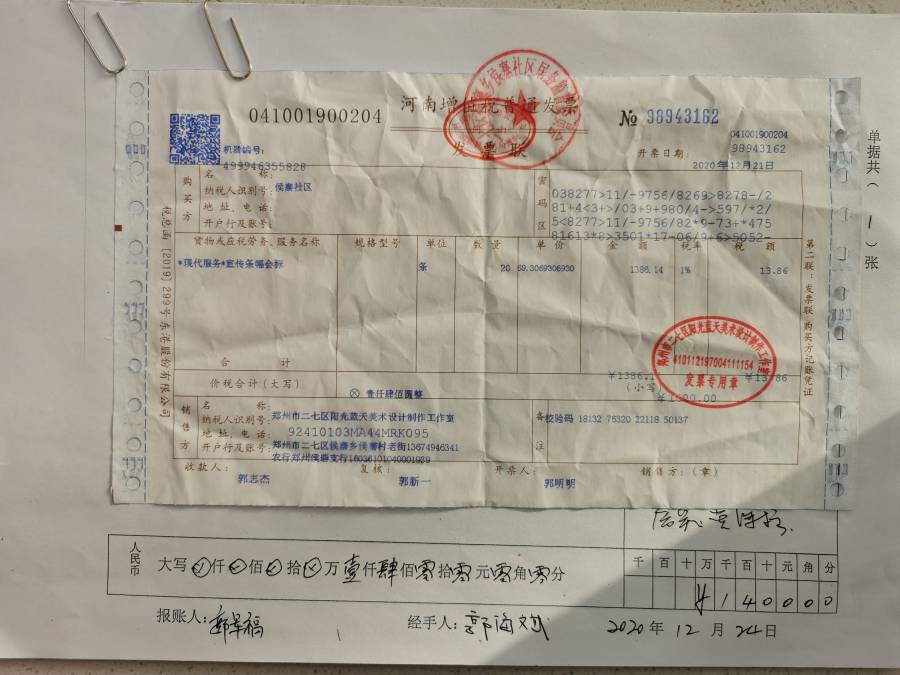 041001900204
河南增值税普通发票
发票联
№ 98943162
041001900204
98943162
机器编号:
499946355828
开票日期:
2020年12月21日
单据共(1)张
购买方
名称:
纳税人识别号:侯寨社区
地址、电话:
开户行及账号:
密码区
038277>11/-9756/8269>8278-/2
81+4<3+>/03+9+980/4->597/*2/
5<8277>11/-9756/82*9-73+*475
81613*8>3501*17-06/9+6>5052-
货物或应税劳务、服务名称 规格型号 单位 数量 单价 金额 税率 税额
*现代服务*宣传条幅会标 条 20 69.3069306930 1386.14 1% 13.86
合计
¥1386.1 ¥13.86
价税合计(大写) ⊗ 壹仟肆佰圆整 (小写)
销售方
名称:郑州市二七区阳光蓝天美术设计制作工作室
纳税人识别号:92410103MA44MRK095
地址、电话:郑州市二七区侯寨乡侯寨村老街13674946341
开户行及账号:农行郑州侯寨支行16036101040001939
备注
校验码 18132 76320 22118 50437
收款人: 郭志杰 复核: 郭新一 开票人: 郭明明 销售方:(章)
税总函〔2019〕299号东港股份有限公司
第二联:发票联 购买方记账凭证
郑州市二七区阳光蓝天美术设计制作工作室
410112197004111154
发票专用章
人民币
大写 仟 佰 拾 万壹仟肆佰零拾零元零角零分
千百十万千百十元角分
¥140000
报账人:
经手人:郭海斌
2020年12月24日